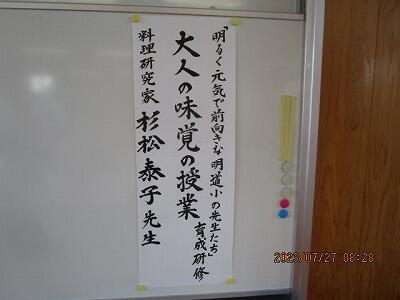 「明るく元気で前向きな明道小の先生たち」
育成研修
大人の味覚の授業
料理研究家 杉松泰子先生
2023/07/27 08:28